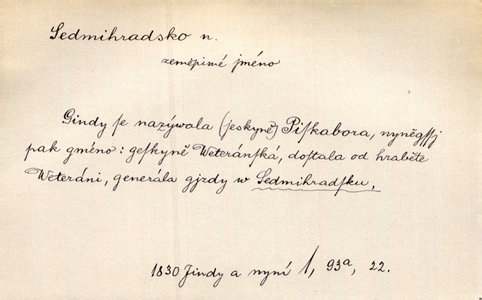 Sedmihradsko n.
zeměpisné jméno
Gindy ſe nazýwala (jeskyně) Piſkabora, nyněgſſj
pak gméno: geſkyně Weteránſká, doſtala od hraběte
Weteráni, generála gjzdy w Sedmihradſku,
1830 Jindy a nyní 1, 93a, 22.